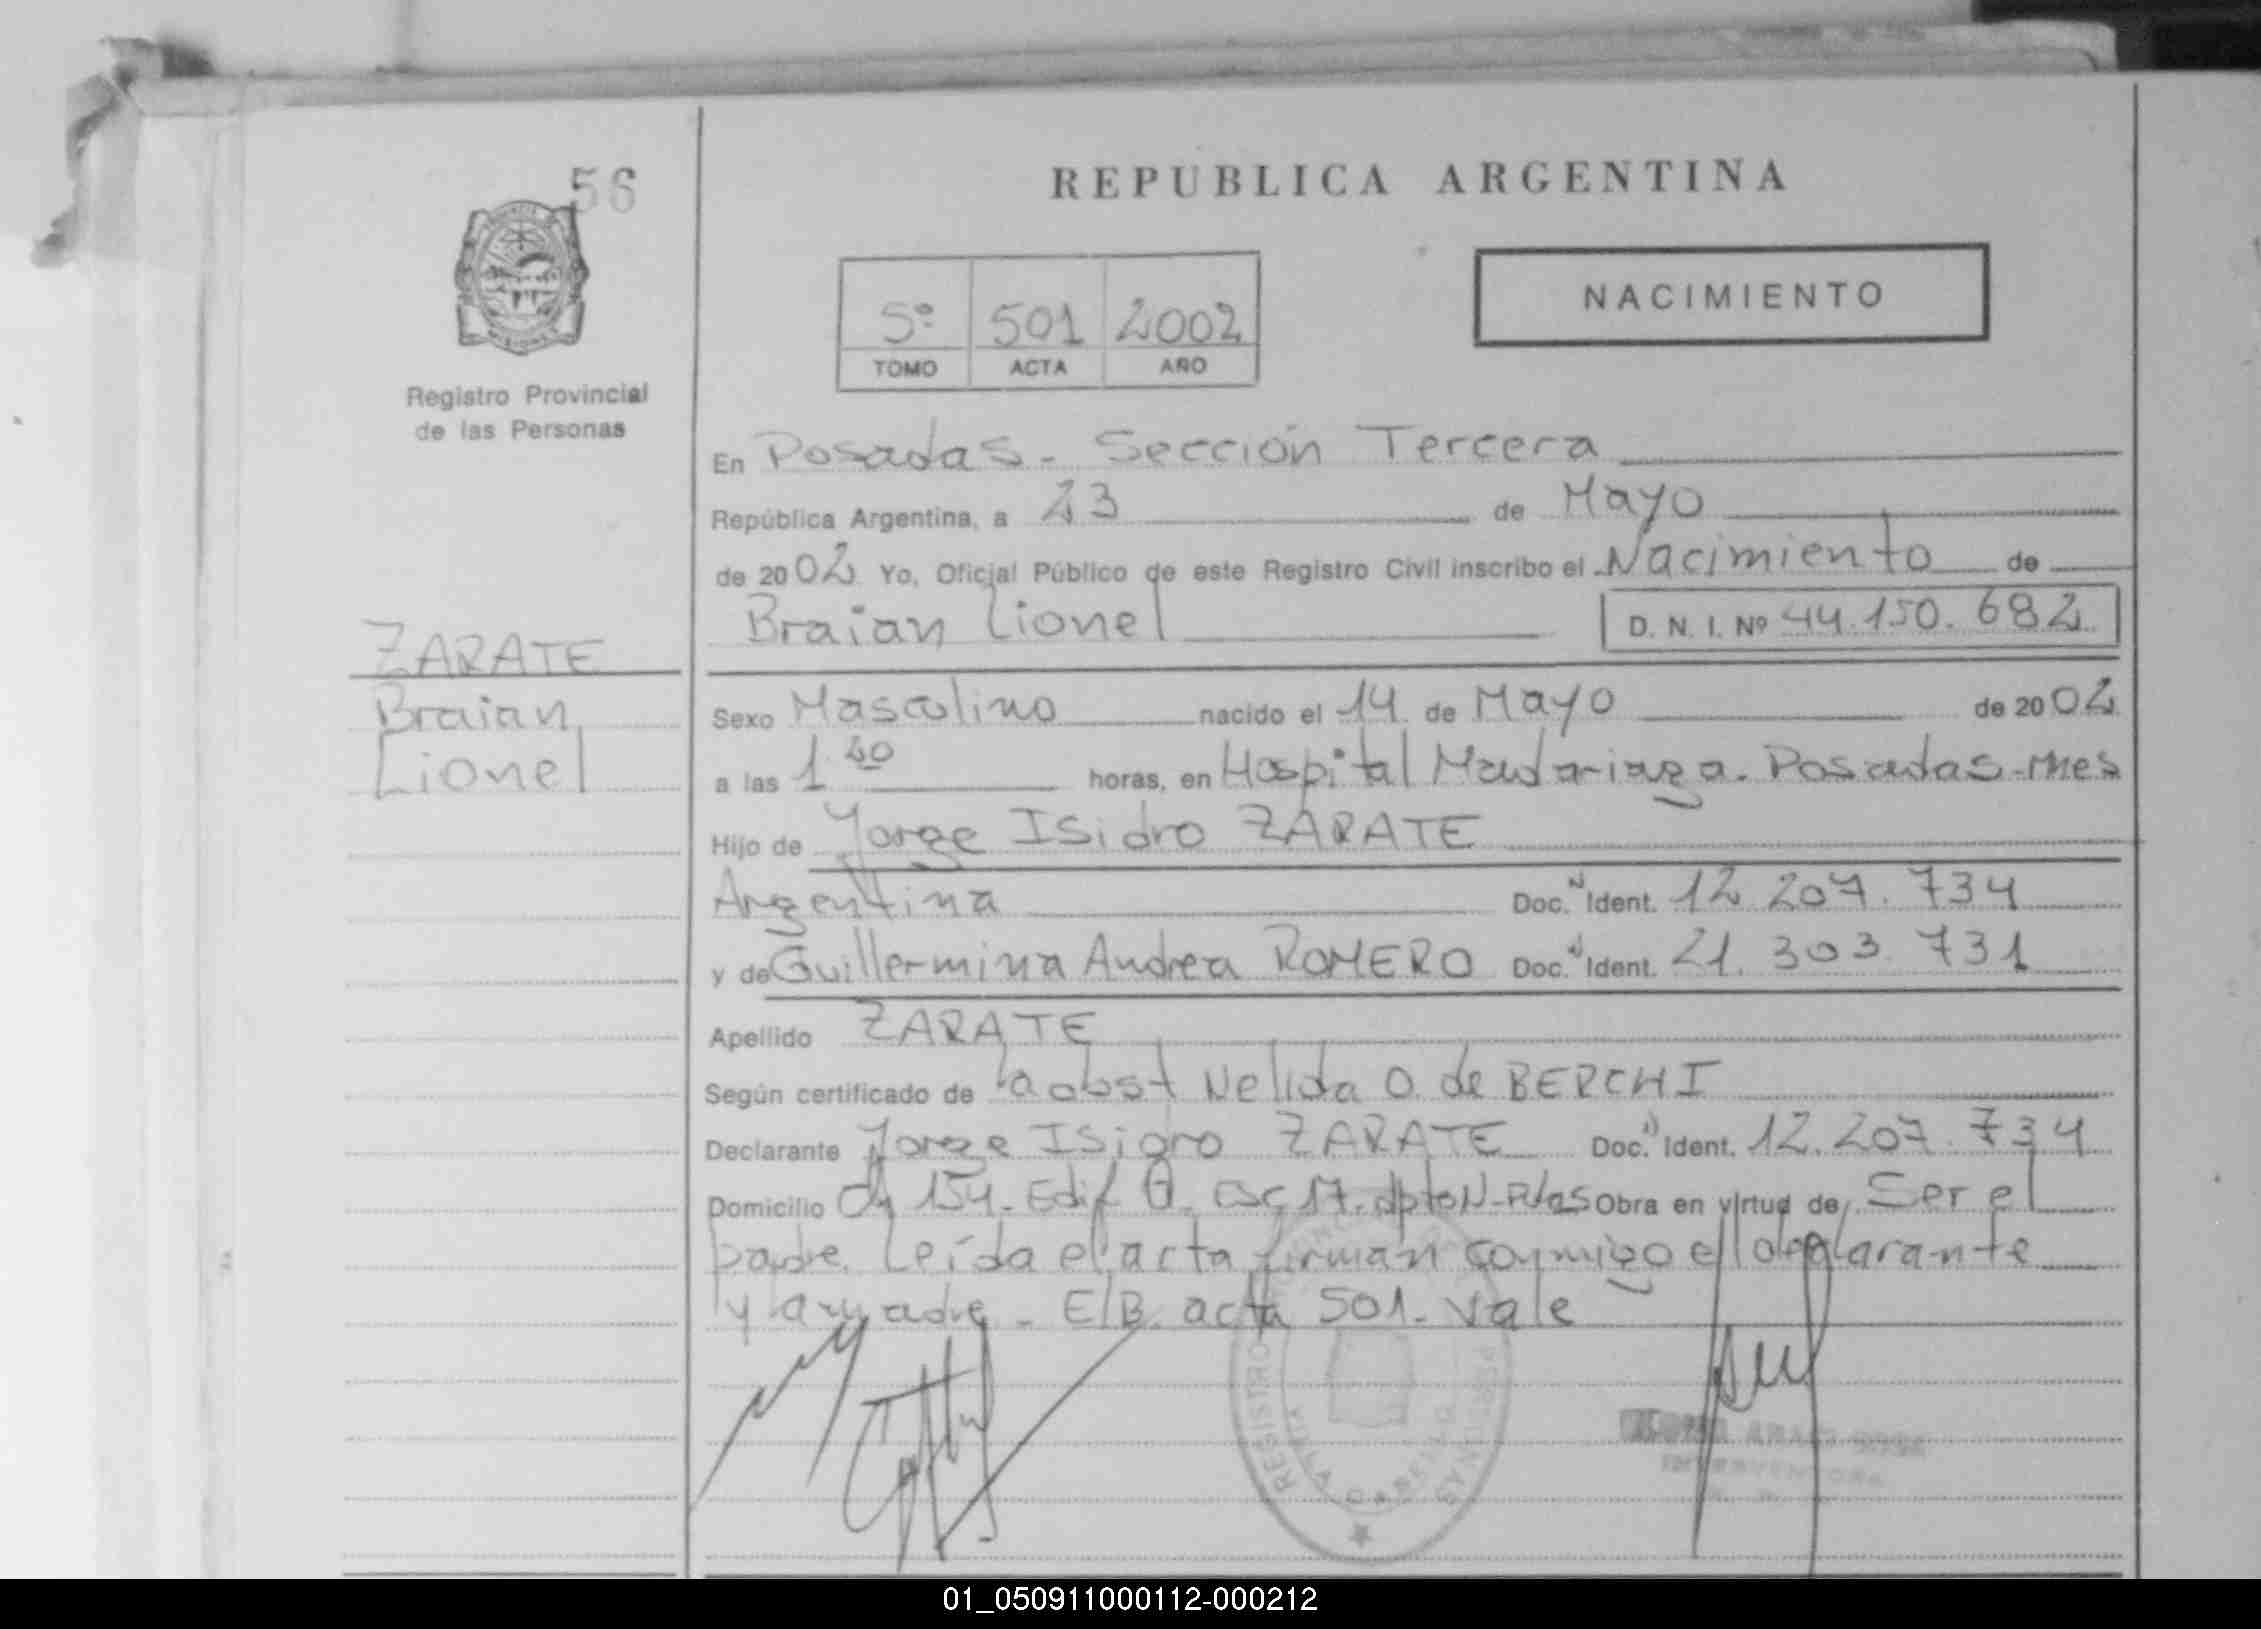 56
REPUBLICA ARGENTINA
NACIMIENTO
5º 501 2002
TOMO ACTA AÑO
Registro Provincial
de las Personas
En Posadas - Sección Tercera
República Argentina, a 23 de Mayo
de 2002 Yo, Oficial Público de este Registro Civil inscribo el Nacimiento de
Braian Lionel D. N. I. Nº 44.150.682
ZARATE
Braian
Lionel
Sexo Masculino nacido el 14 de Mayo de 2002
a las 1 40 horas, en Hospital Madariaga. Posadas-Mnes
Hijo de Jorge Isidro ZARATE
Argentina Doc. N Ident. 12.207.734
y de Guillermina Andrea ROMERO Doc. Ident. 21.303.731
Apellido ZARATE
Según certificado de la obst Nelida O. de BERCHI
Declarante Jorge Isidro ZARATE Doc. Ident. 12.207.734
Domicilio Ch 154. Edif esc 17. dpto N-Pdas Obra en virtud de Ser el
padre. Leída el acta firman conmigo el declarante
y la madre - E/B. acta 501. Vale
REGISTRO PERSONAS
INTERVENTORA
01_050911000112-000212